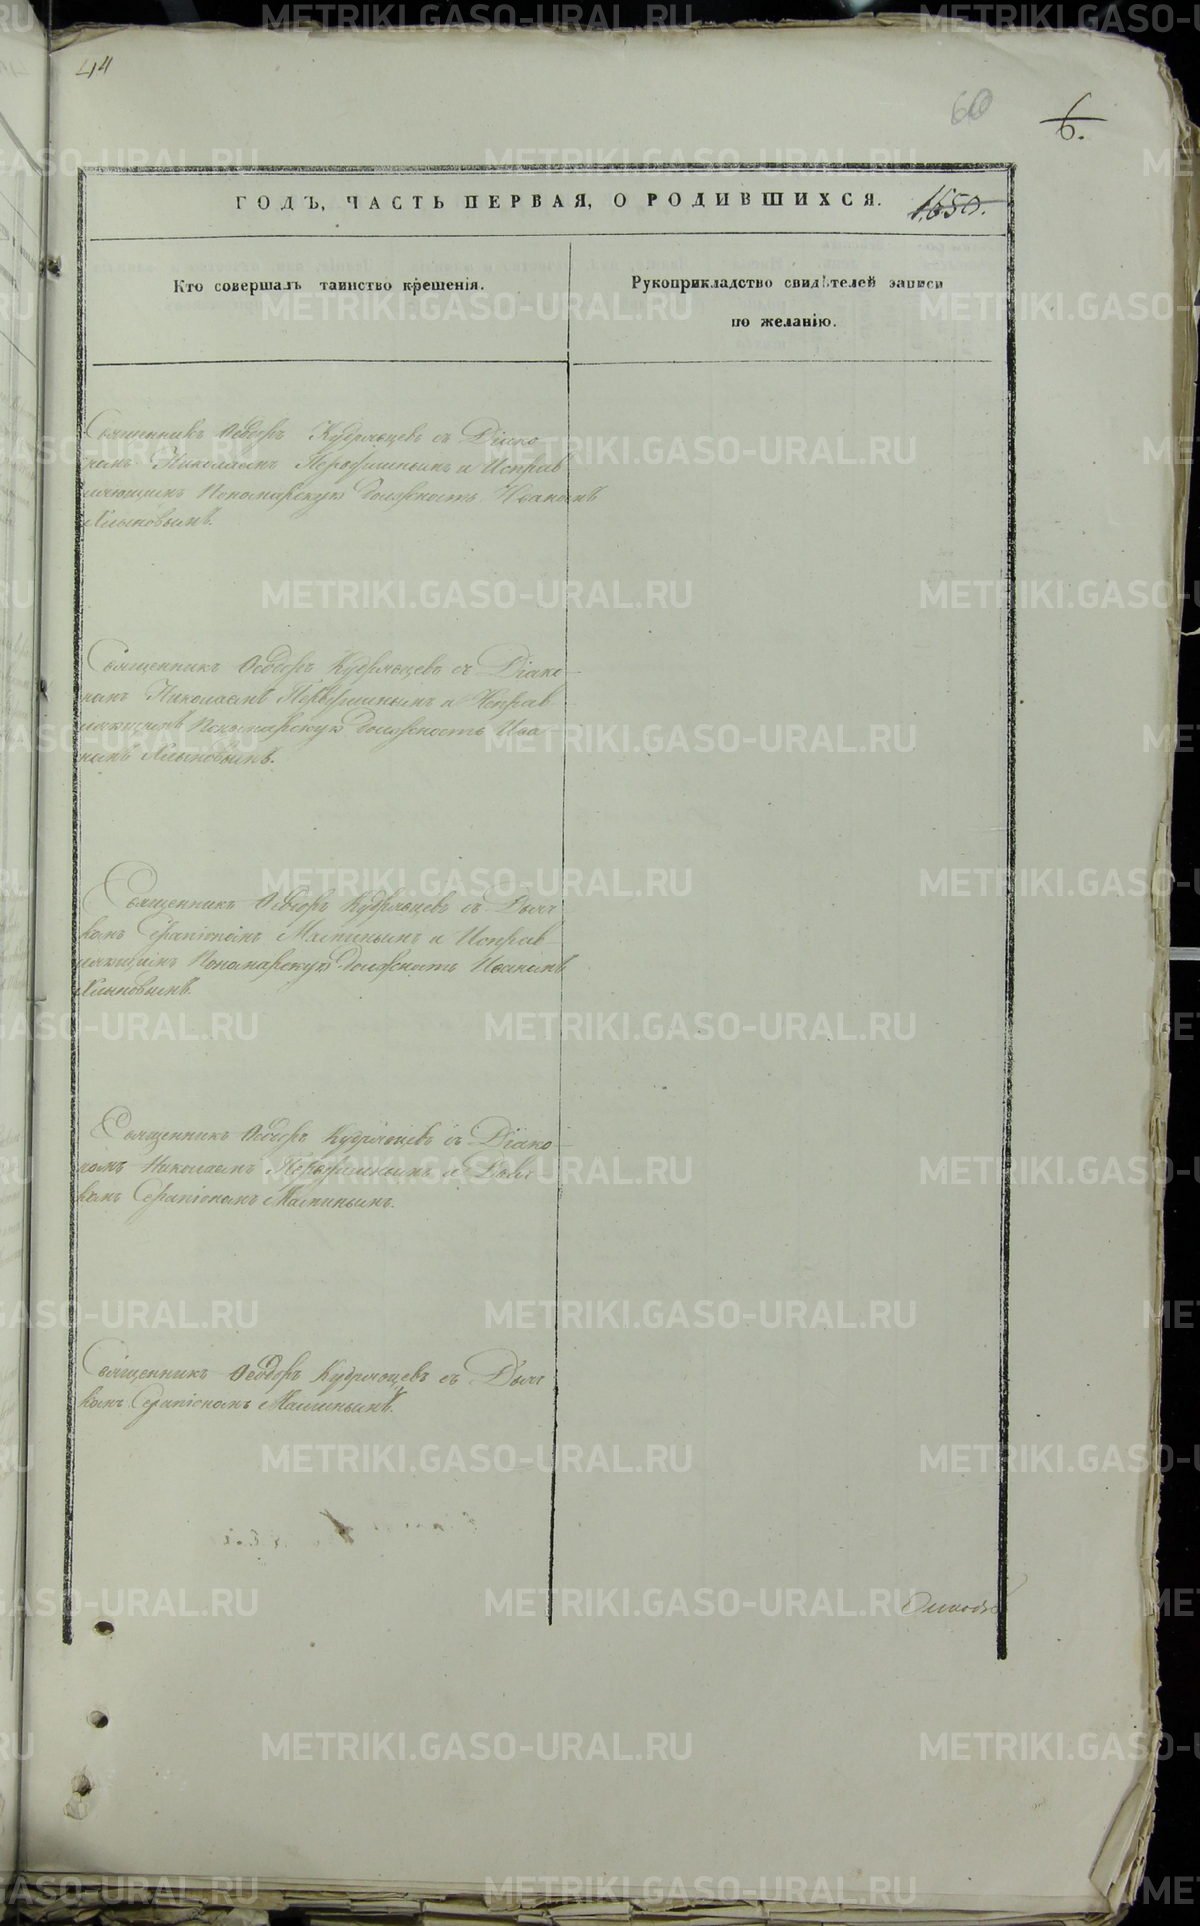 44
60
6
6.
ГОДЪ, ЧАСТЬ ПЕРВАЯ, О РОДИВШИХСЯ. 1,650.
Кто совершалъ таинство крещенія.
Рукоприкладство свидѣтелей записи
по желанію.
Священникъ Ѳеодоръ Кудрявцевъ съ Діако
номъ Николаемъ Перфишинымъ и Исправ
ляющимъ Пономарскую должность Иваномъ
Хлыновымъ.
Священникъ Ѳеодоръ Кудрявцевъ съ Діако-
номъ Николаемъ Перфишинымъ и Исправ
ляющимъ Пономарскую должность Ива-
номъ Хлыновымъ.
Священникъ Ѳеодоръ Кудрявцевъ съ Дьяч
комъ Серапіономъ Малининымъ и Исправ-
ляющимъ Пономарскую должность Иваномъ
Хлыновымъ.
Священникъ Ѳеодоръ Кудрявцевъ съ Діако-
номъ Николаемъ Перфишинымъ и Дьяч
комъ Серапіономъ Малининымъ.
Священникъ Ѳеодоръ Кудрявцевъ съ Дьяч
комъ Серапіономъ Малининымъ.
METRIKI.GASO-URAL.RU